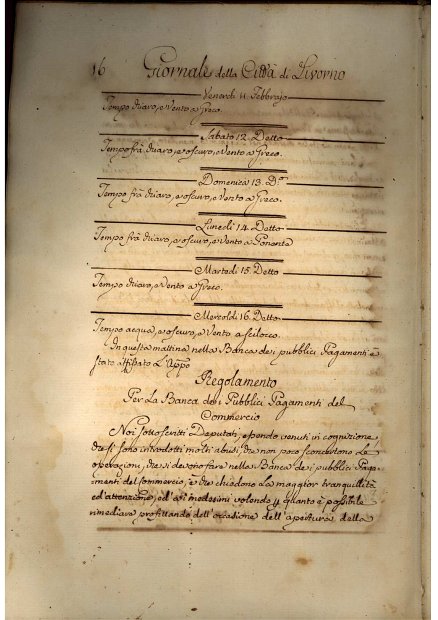 16 Giornale della Città di Livorno
Venerdì 11 Febbrajo
Tempo chiaro, e Vento a Greco.
Sabato 12. Detto
Tempo frà chiaro, e oscuro, e Vento a Greco.
Domenica 13. D.º
Tempo frà chiaro, e oscuro, e Vento a Greco.
Lunedì 14. Detto
Tempo frà chiaro, e oscuro, e Vento a Ponente
Martedì 15. Detto
Tempo chiaro, e Vento a Greco.
Mercoldì 16. Detto
Tempo acqua, e oscuro, e Vento a Scilocco.
In questa mattina nella Banca dei pubblici Pagamenti è
stato Affissato L'App.º
Regolamento
Per La Banca dei Pubblici Pagamenti del
Commercio
Noi sottoscritti Deputati, essendo venuti in cognizione,
che si sono introdotti molti abusi, che non poco sconcertano Le
operazioni, che si devono fare nella Banca dei pubblici Paga-
menti del Commercio, e che chiedono La maggior tranquillità
ed attenzione, ed ai medesimi volendo p quanto è possibile
rimediare profittando dell'occasione dell'apertura della